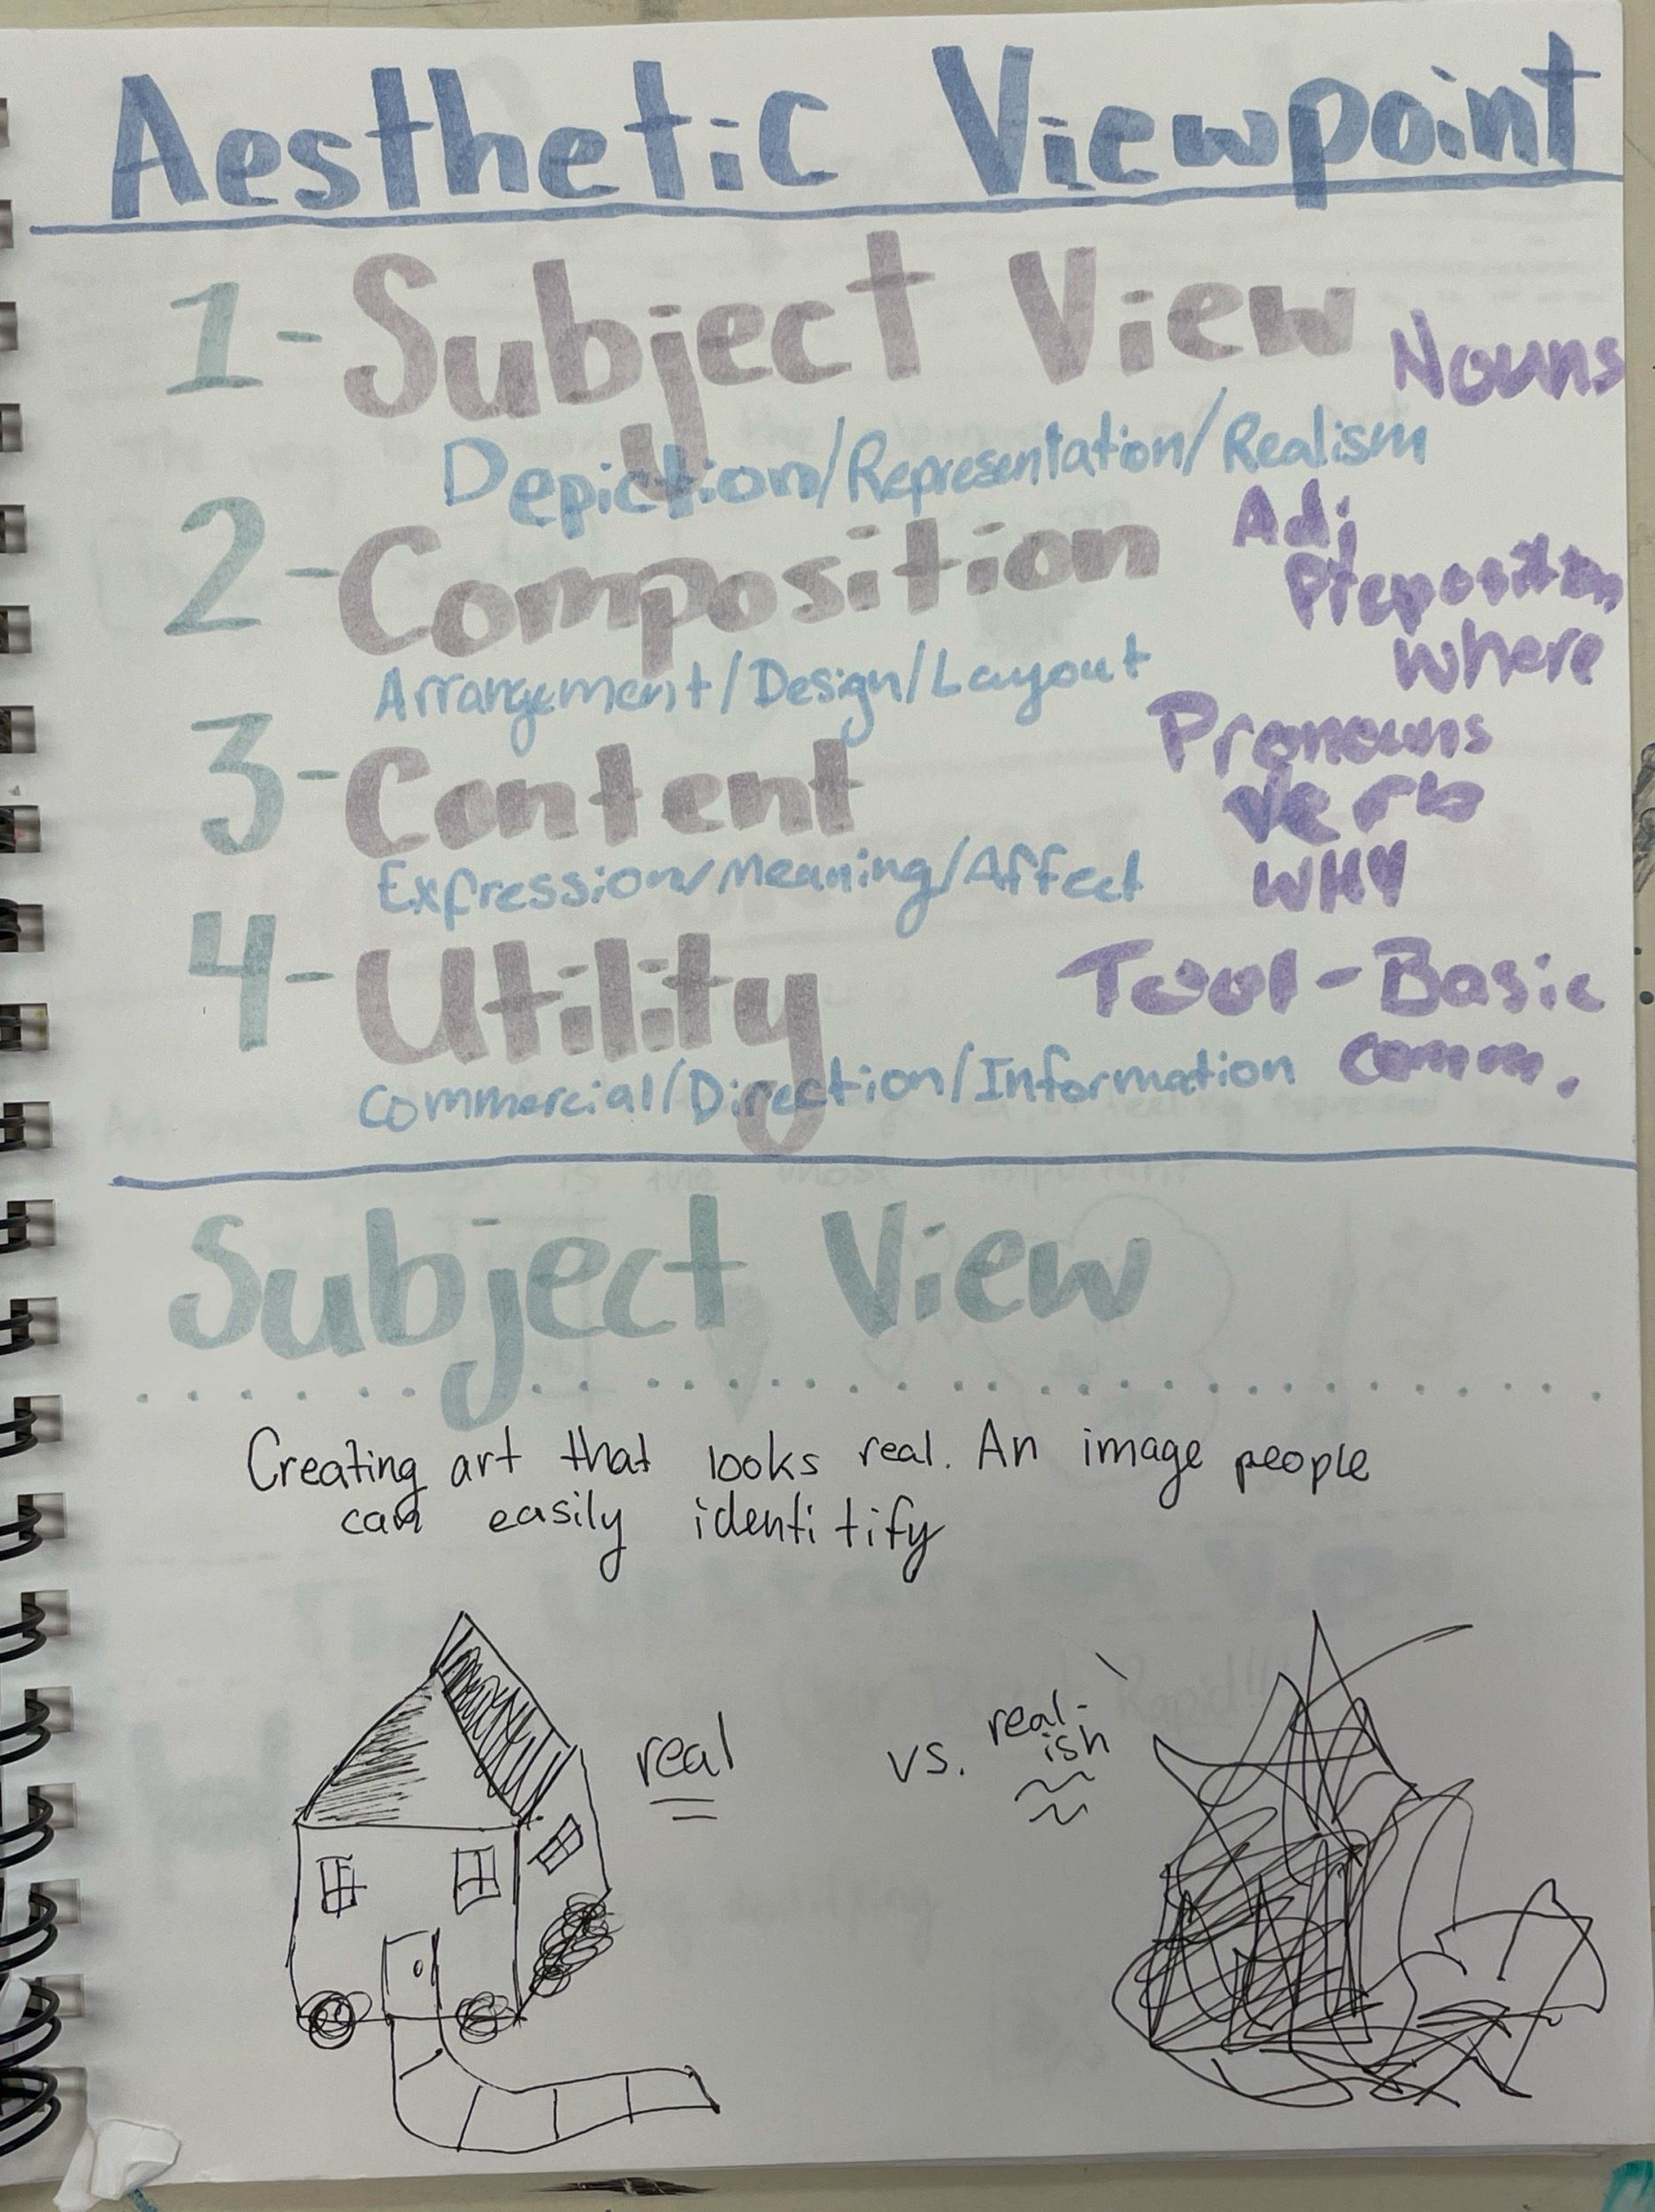 Aesthetic Viewpoint
1- Subject View
Nouns
Depiction/Representation/Realism
2- Composition
Adj
Preposition
where
Arrangement/Design/Layout
3- Content
Pronouns
Verb
WHY
Expression/Meaning/Affect
4- Utility
Tool-Basic
comm.
Commercial/Direction/Information
Subject View
Creating art that looks real. An image people
can easily identitify
real vs. real-
ish